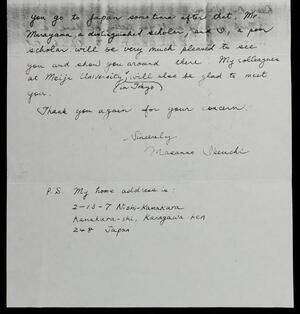 you go to Japan sometime after that, Mr
Maruyama, a distinguished scholar, and I, a poor
scholar will be very much pleased to see
you and show you around there. My colleagues
at Meiji University, will also be glad to meet
(in Tokyo)
you.
Thank you again for your concern.
Sincerely
Masanao
P.S. My home address is:
2-13-7 Nishi-Kamakura
Kamakura-shi, Kanagawa Ken
248 Japan